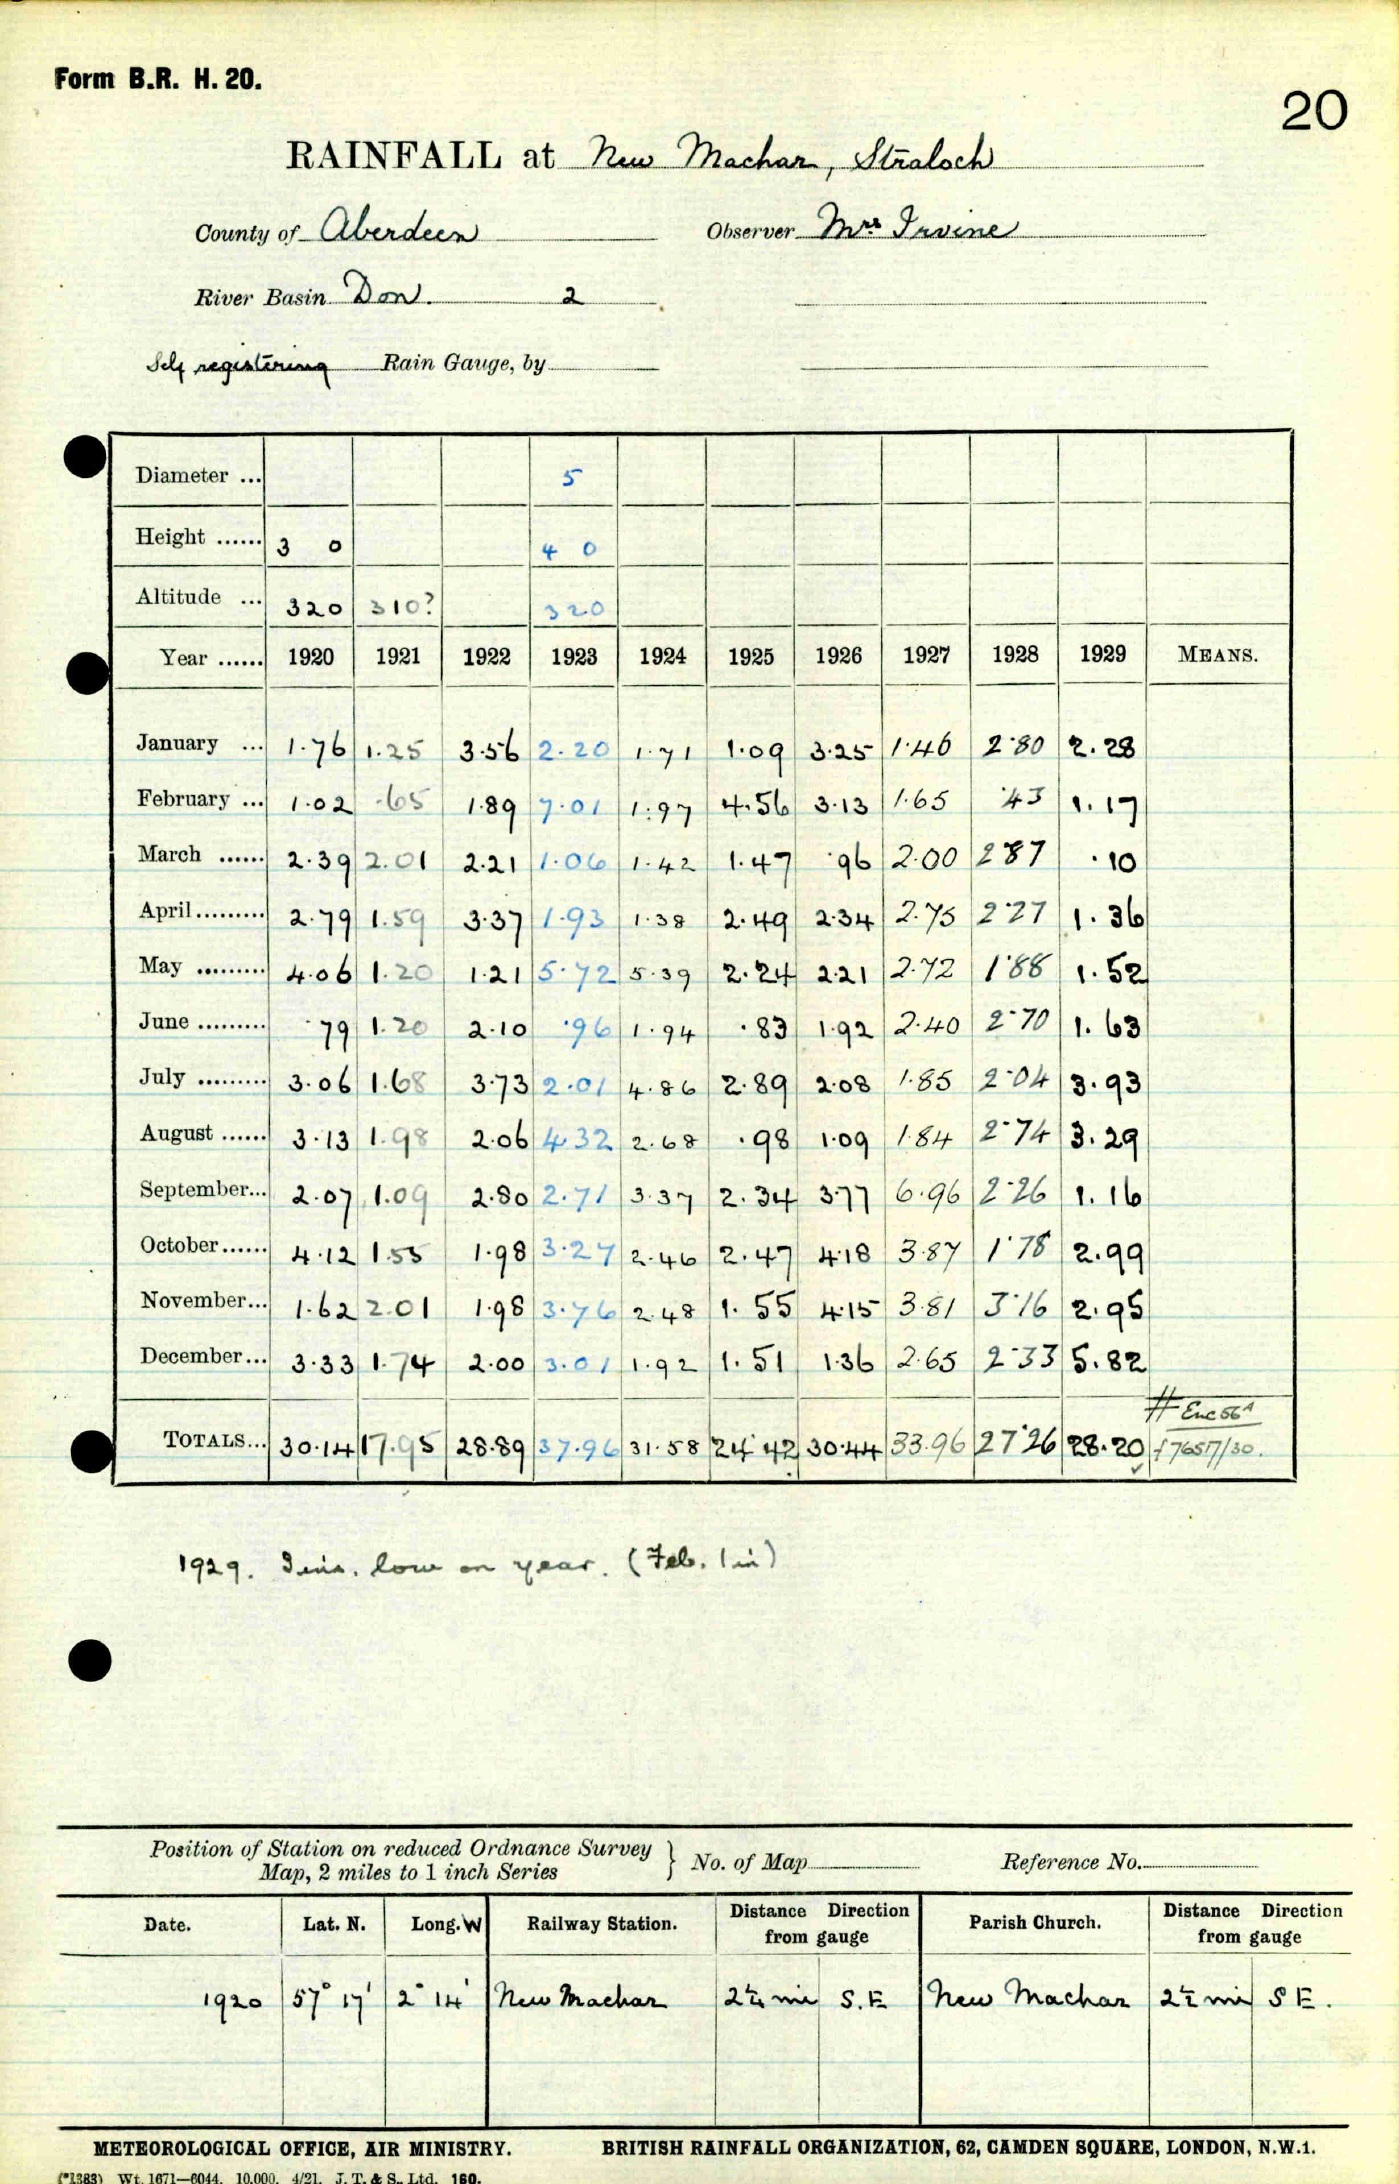 Form B.R. H. 20.
20
RAINFALL at New Machar, Straloch
County of Aberdeen Observer Mrs Irvine
River Basin Don. 2
Self registering Rain Gauge, by
Diameter ... 5
Height ...... 3 0 4 0
Altitude ... 320 310? 320
Year ...... 1920 1921 1922 1923 1924 1925 1926 1927 1928 1929 MEANS.
January ... 1.76 1.25 3.56 2.20 1.71 1.09 3.25 1.46 2.80 2.28
February ... 1.02 .65 1.89 7.01 1.97 4.56 3.13 1.65 .43 1.17
March ...... 2.39 2.01 2.21 1.06 1.42 1.47 .96 2.00 2.87 .10
April......... 2.79 1.59 3.37 1.93 1.38 2.49 2.34 2.75 2.27 1.36
May ......... 4.06 1.20 1.21 5.72 5.39 2.24 2.21 2.72 1.88 1.52
June ......... .79 1.20 2.10 .96 1.94 .83 1.92 2.40 2.70 1.63
July ......... 3.06 1.68 3.73 2.01 4.86 2.89 2.08 1.85 2.04 3.93
August ...... 3.13 1.98 2.06 4.32 2.68 .98 1.09 1.84 2.74 3.29
September... 2.07 1.09 2.80 2.71 3.37 2.34 3.77 6.96 2.26 1.16
October...... 4.12 1.55 1.98 3.27 2.46 2.47 4.18 3.87 1.78 2.99
November... 1.62 2.01 1.98 3.76 2.48 1.55 4.15 3.81 3.16 2.95
December... 3.33 1.74 2.00 3.01 1.92 1.51 1.36 2.65 2.33 5.82
# Enc 56A
TOTALS... 30.14 17.95 28.89 37.96 31.58 24.42 30.44 33.96 27.26 28.20 f7657/30.
1929. low on year. (Feb. 1 in)
Position of Station on reduced Ordnance Survey
Map, 2 miles to 1 inch Series } No. of Map Reference No.
Date. Lat. N. Long. W Railway Station. Distance Direction from gauge Parish Church. Distance Direction from gauge
1920 57° 17' 2° 14' New Machar 2¼ mi S.E New Machar 2½ mi S E.
METEOROLOGICAL OFFICE, AIR MINISTRY. BRITISH RAINFALL ORGANIZATION, 62, CAMDEN SQUARE, LONDON, N.W.1.
(*1383) Wt. 1671—6044. 10,000. 4/21. J. T. & S., Ltd. 160.